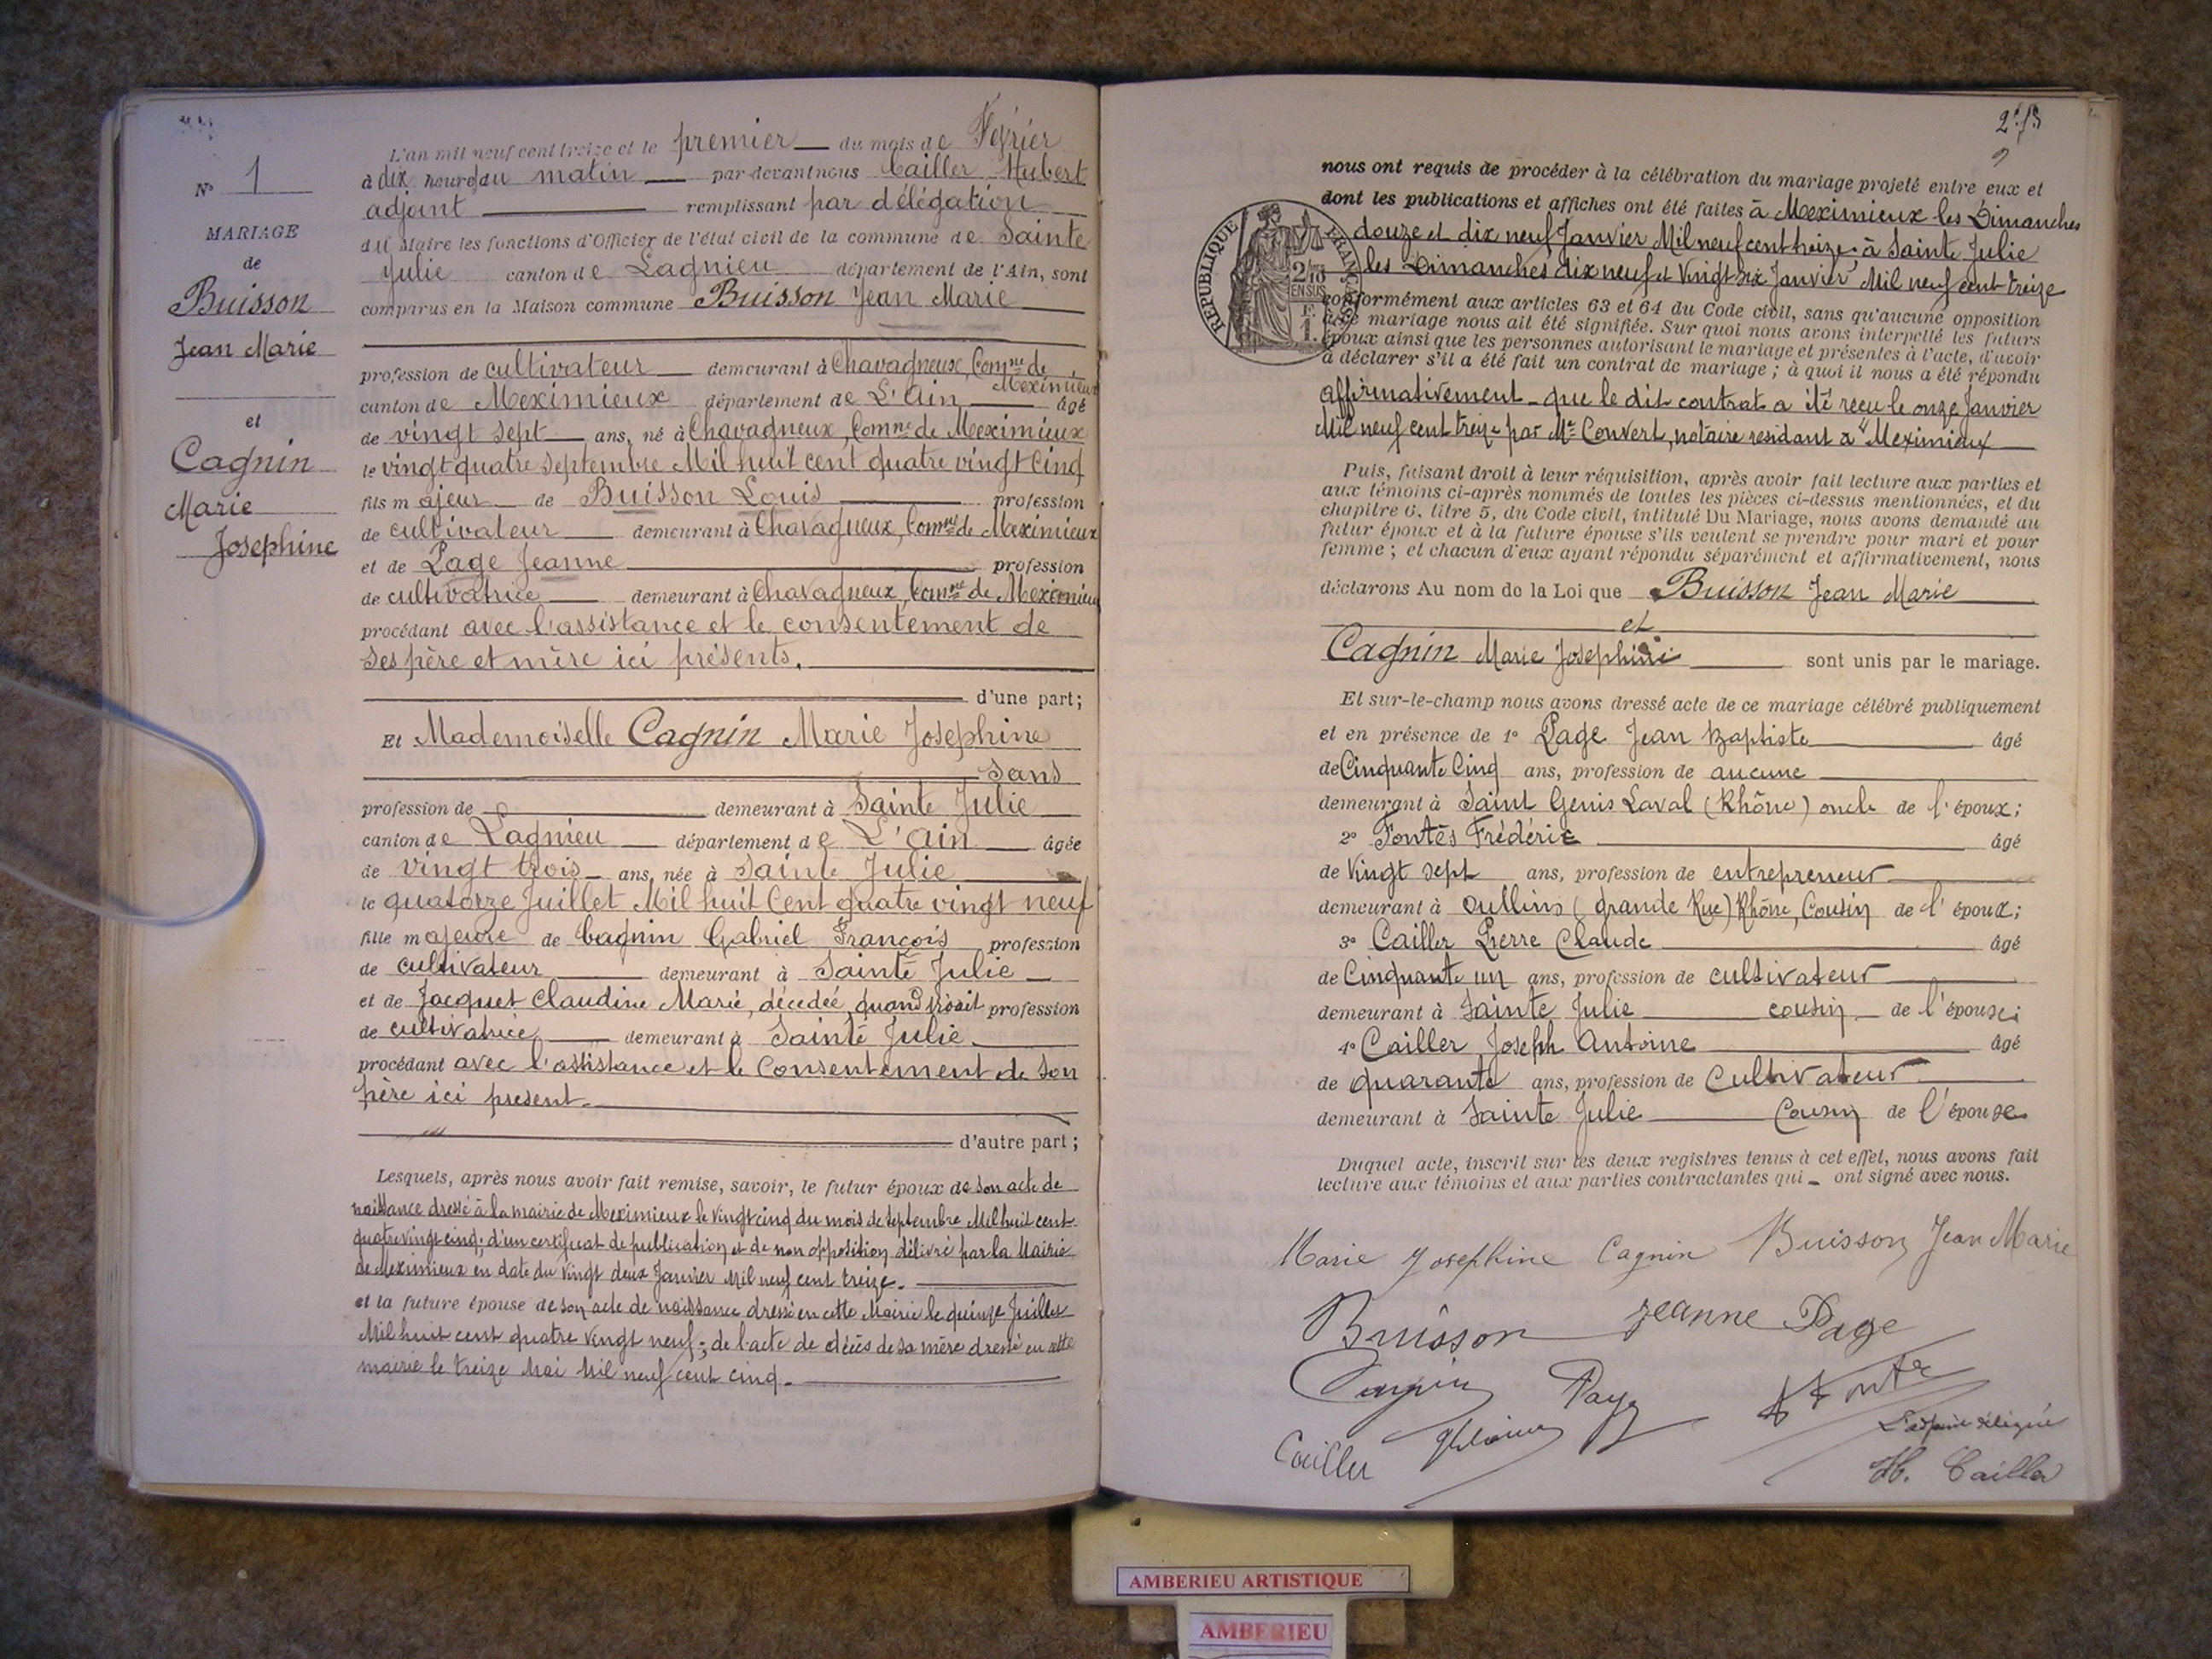 N° 1
MARIAGE
de
Buisson
Jean Marie
et
Cagnin
Marie
Josephine
L'an mil neuf cent treize et le premier du mois de Février
à dix heures du matin par-devant nous Cailler Hubert
adjoint remplissant par délégation
du Maire les fonctions d'Officier de l'état civil de la commune de Sainte
Julie canton de Lagnieu département de l'Ain, sont
comparus en la Maison commune Buisson Jean Marie
profession de cultivateur demeurant à Chavagneux, Comne de
Meximieux
canton de Meximieux département de L'Ain âgé
de vingt sept ans, né à Chavagneux, Comne de Meximieux
le vingt quatre Septembre Mil huit cent quatre vingt Cinq
fils majeur de Buisson Louis profession
de cultivateur demeurant à Chavagneux, Comne de Maximieux
et de Page Jeanne profession
de cultivatrice demeurant à Chavagneux, Comne de Meximieu
procédant avec l'assistance et le consentement de
ses père et mère ici présents.
d'une part;
Et Mademoiselle Cagnin Marie Josephine
Sans
profession de demeurant à Sainte Julie
canton de Lagnieu département de L'Ain âgée
de vingt trois ans, née à Sainte Julie
le quatorze Juillet Mil huit Cent quatre vingt neuf
fille majeure de Cagnin Gabriel François profession
de cultivateur demeurant à Sainte Julie
et de Jacquet Claudine Marie, décedée, quand vivait profession
de cultivatrice demeurant à Sainte Julie
procédant avec l'assistance et le Consentement de son
père ici present.
d'autre part;
Lesquels, après nous avoir fait remise, savoir, le futur époux de son acte de
naissance dressé à la mairie de Meximieux le vingt cinq du mois de Septembre Mil huit cent
quatre vingt cinq; d'un certificat de publication et de non opposition délivré par la Mairie
de Meximieux en date du vingt deux Janvier Mil neuf cent treize.
et la future épouse de son acte de naissance dressé en cette Mairie le quinze Juillet
Mil huit cent quatre vingt neuf; de l'acte de décès de sa mère dressé en cette
mairie le treize Mai Mil neuf cent cinq.
nous ont requis de procéder à la célébration du mariage projeté entre eux et
dont les publications et affiches ont été faites à Meximieux les Dimanches
douze et dix neuf Janvier Mil neuf cent treize; à Sainte Julie
les Dimanches dix neuf et Vingt six Janvier Mil neuf cent treize
RÉPUBLIQUE FRANÇAISE
2/10
EN SUS
F.
1.
conformément aux articles 63 et 64 du Code civil, sans qu'aucune opposition
à ce mariage nous ait été signifiée. Sur quoi nous avons interpellé les futurs
époux ainsi que les personnes autorisant le mariage et présentes à l'acte, d'avoir
à déclarer s'il a été fait un contrat de mariage; à quoi il nous a été répondu
affirmativement que le dit contrat a été reçu le onze Janvier
Mil neuf cent treize par Me Convert, notaire residant à Meximieux
Puis, faisant droit à leur réquisition, après avoir fait lecture aux parties et
aux témoins ci-après nommés de toutes les pièces ci-dessus mentionnées, et du
chapitre 6, titre 5, du Code civil, intitulé Du Mariage, nous avons demandé au
futur époux et à la future épouse s'ils veulent se prendre pour mari et pour
femme; et chacun d'eux ayant répondu séparément et affirmativement, nous
déclarons Au nom de la Loi que Buisson Jean Marie
et
Cagnin Marie Josephine sont unis par le mariage.
Et sur-le-champ nous avons dressé acte de ce mariage célébré publiquement
et en présence de 1° Page Jean Baptiste âgé
de Cinquante Cinq ans, profession de aucune
demeurant à Saint Genis Laval (Rhône) oncle de l'époux;
2° Fontès Frédéric âgé
de Vingt sept ans, profession de entrepreneur
demeurant à Oullins (grande Rue) Rhône, Cousin de l'époux;
3° Cailler Pierre Claude âgé
de Cinquante un ans, profession de cultivateur
demeurant à Sainte Julie cousin de l'épouse;
4° Cailler Joseph Antoine âgé
de quarante ans, profession de Cultivateur
demeurant à Sainte Julie Cousin de l'épouse
Duquel acte, inscrit sur les deux registres tenus à cet effet, nous avons fait
lecture aux témoins et aux parties contractantes qui ont signé avec nous.
Marie Josephine Cagnin Buisson Jean Marie
Buisson Jeanne Page
Cagnin Page
L'adjoint délégué
Cailler H. Cailler
AMBERIEU ARTISTIQUE
AMBERIEU